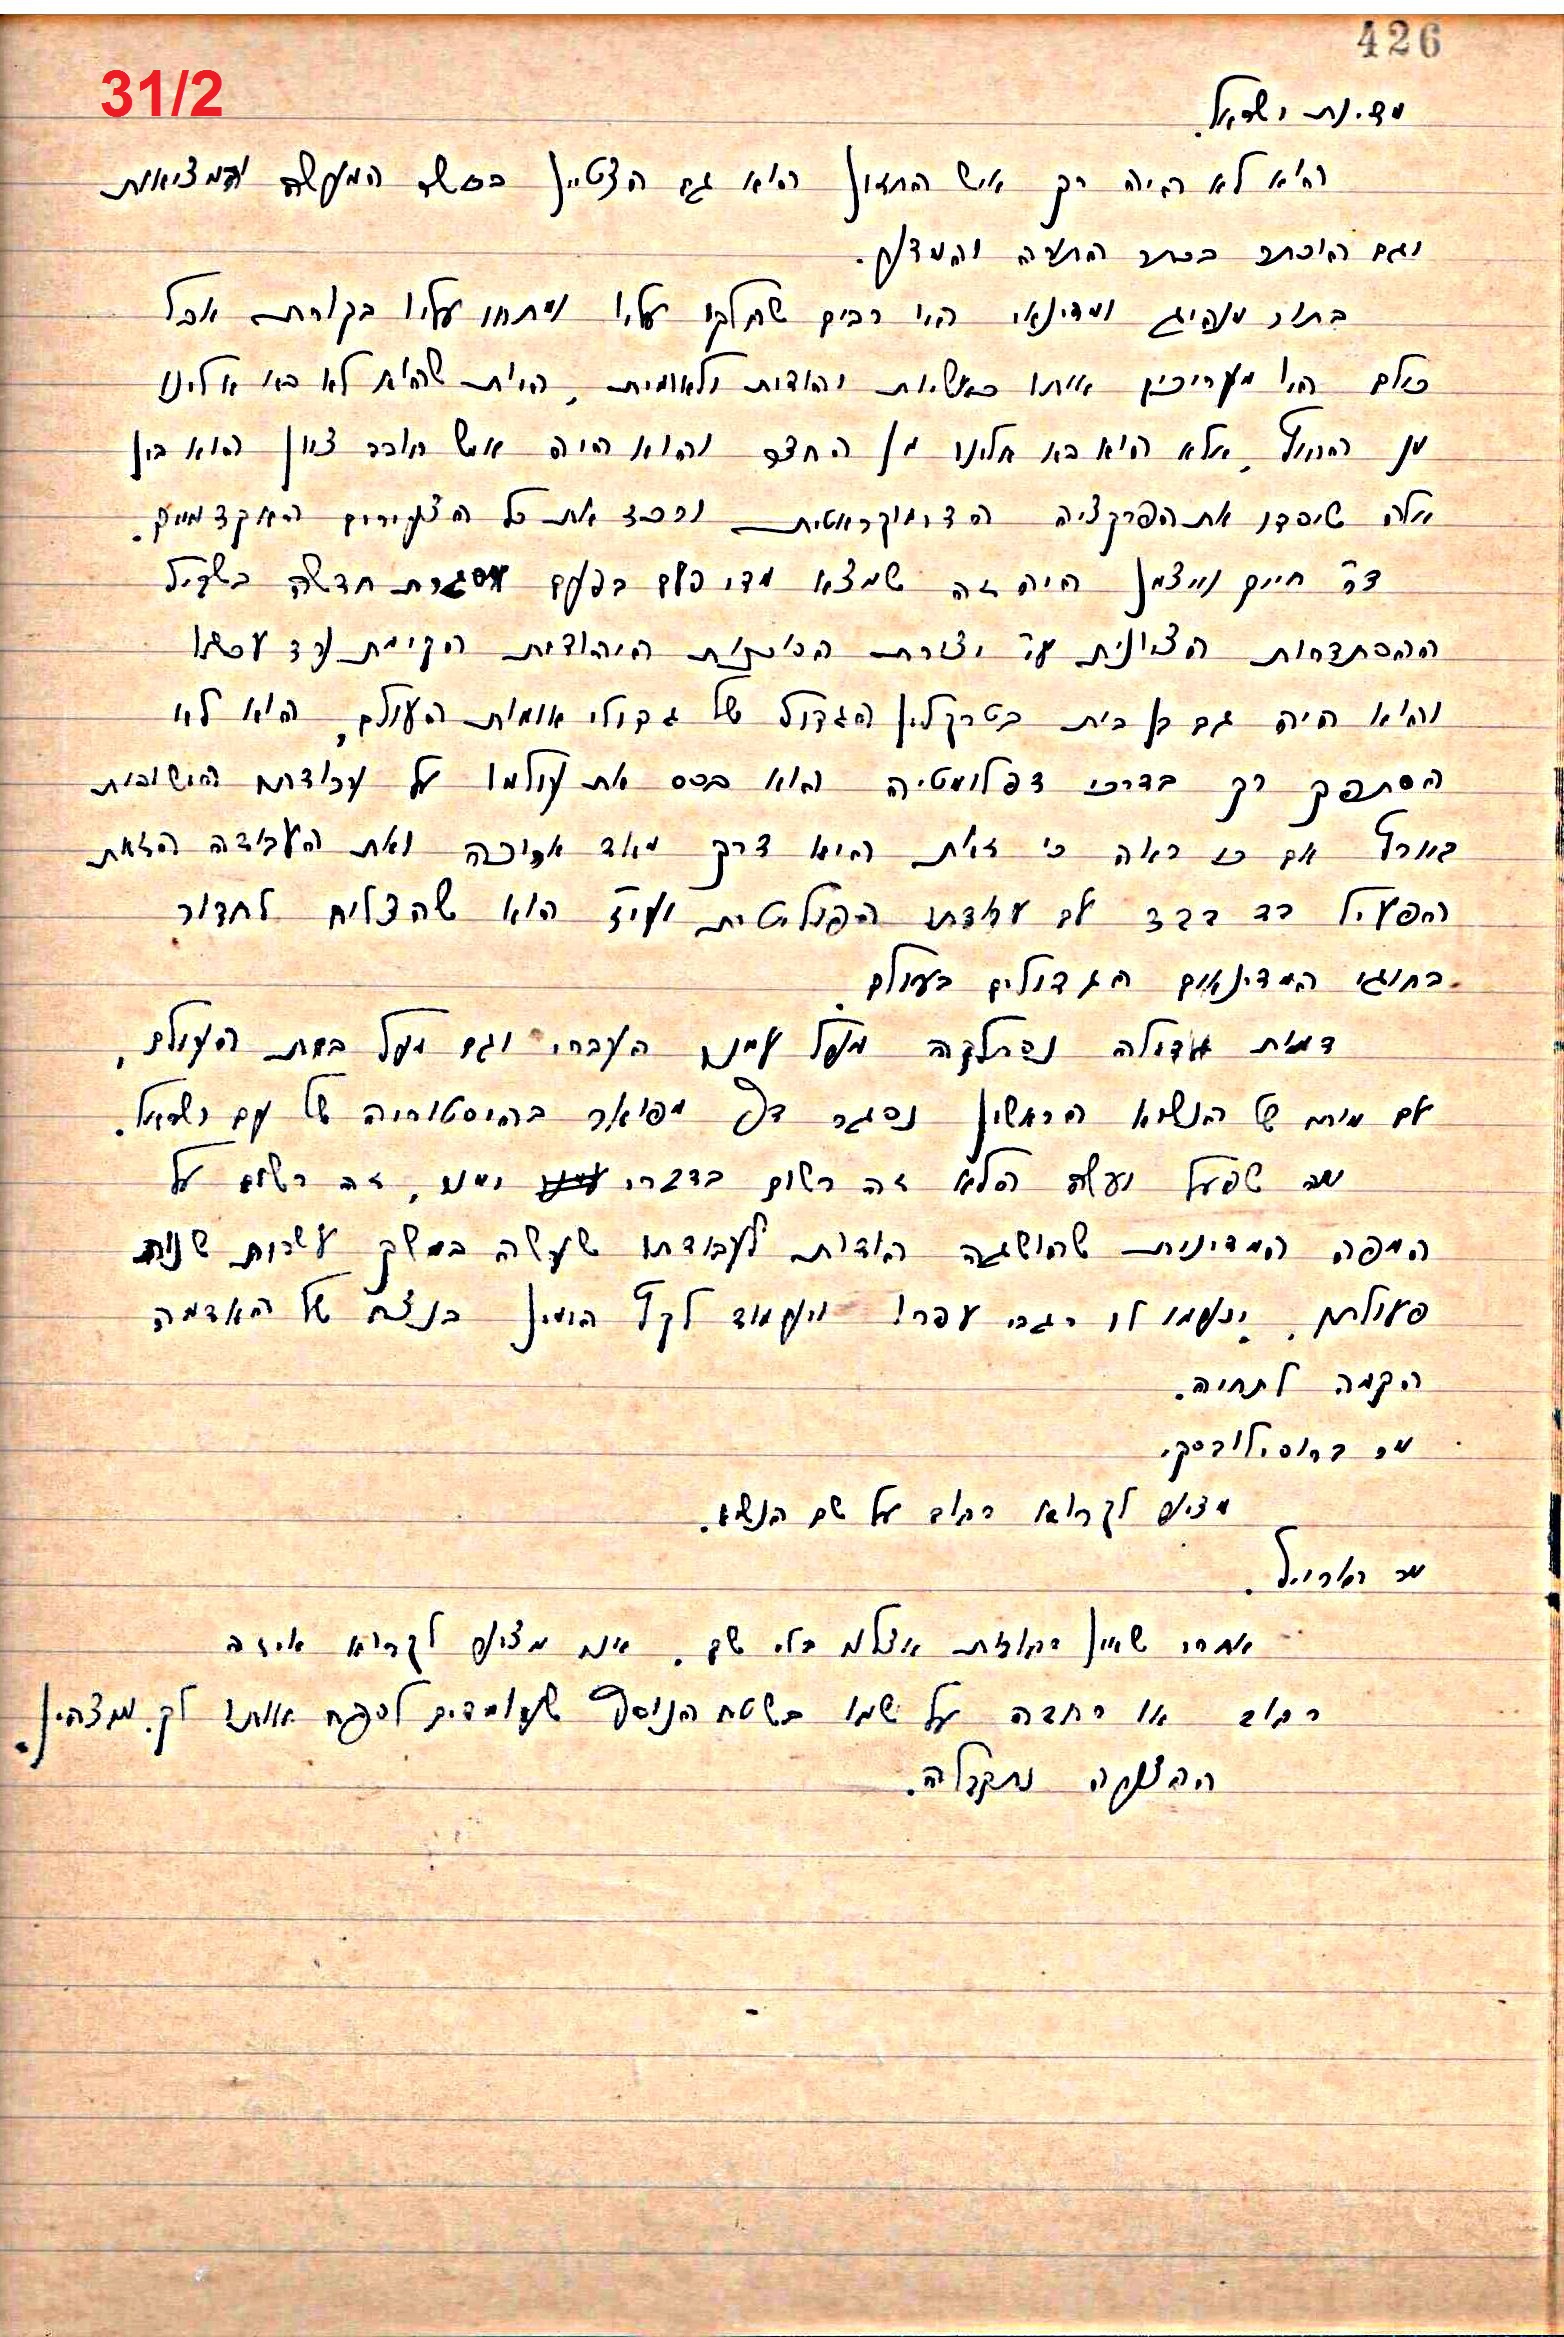 426
31/2
מדינת ישראל.
הוא לא היה רק איש החזון הוא גם הצטיין בכשר המעשה והמציאות
וגם הוכתר בכתר התורה והמדע.
בתור מנהיג ומדינאי היו רבים שחלקו עליו ומתחו עליו בקורת אבל
כולם היו מעריכים אותו כאשיות יהודית ולאומית, היות שהוא לא בא אלינו
מן החוץ, אלא הוא בא אלינו מן החצר והוא היה איש חובב ציון הוא בין
אלה שיסדו את הפרקציה הדימוקראטית ורכז את כל הצעירים האקדמיים.
ד״ר חיים וייצמן היה זה שמצא מדי פעם בפעם מסגרת חדשה בשביל
ההסתדרות הציונית ע״י יצירת הסוכנות היהודית הקיימת עד עכשו
והוא היה גם בן בית בטרקלין הגדול של גדולי אומות העולם, הוא לא
הסתפק רק בדרכי דפלומטיה הוא בסס את עולמו על עבודתם הישובית
בארץ אם כי ראה כי זאת היא דרך מאד ארוכה ואת העבודה הזאת
הפעיל בד בבד עם עבודתו הפוליטית ועי״ז הוא שהצליח לחדור
בחוגי המדינאים הגדולים בעולם.
דמות גדולה נסתלקה מעל עמנו העברי וגם מעל במת העולם,
עם מותו של הנשיא הראשון נסגר דף מפואר בהיסטוריה של עם ישראל.
מה שפעל ועשה הלא זה רשום בדברי ימנו, זה רשום על
המפה המדינית שהושגה הודות לעבודתו שעשה במשך עשרות שנות
פעולתו. ינעמו לו רגבי עפרו ויעמוד לקץ הימין בנצח של האדמה
הקמה לתחיה.
מר ברוסילובסקי.
מציע לקרוא רחוב על שם הנשיא.
מר הארייל.
אחרי שאין רחובות אצלנו בלי שם. אינו מציע לקרוא איזה
רחוב או רחבה על שמו בשטח הנוסף שעומדים לספח אותו לק. מוצקין.
ההצעה נתקבלה.